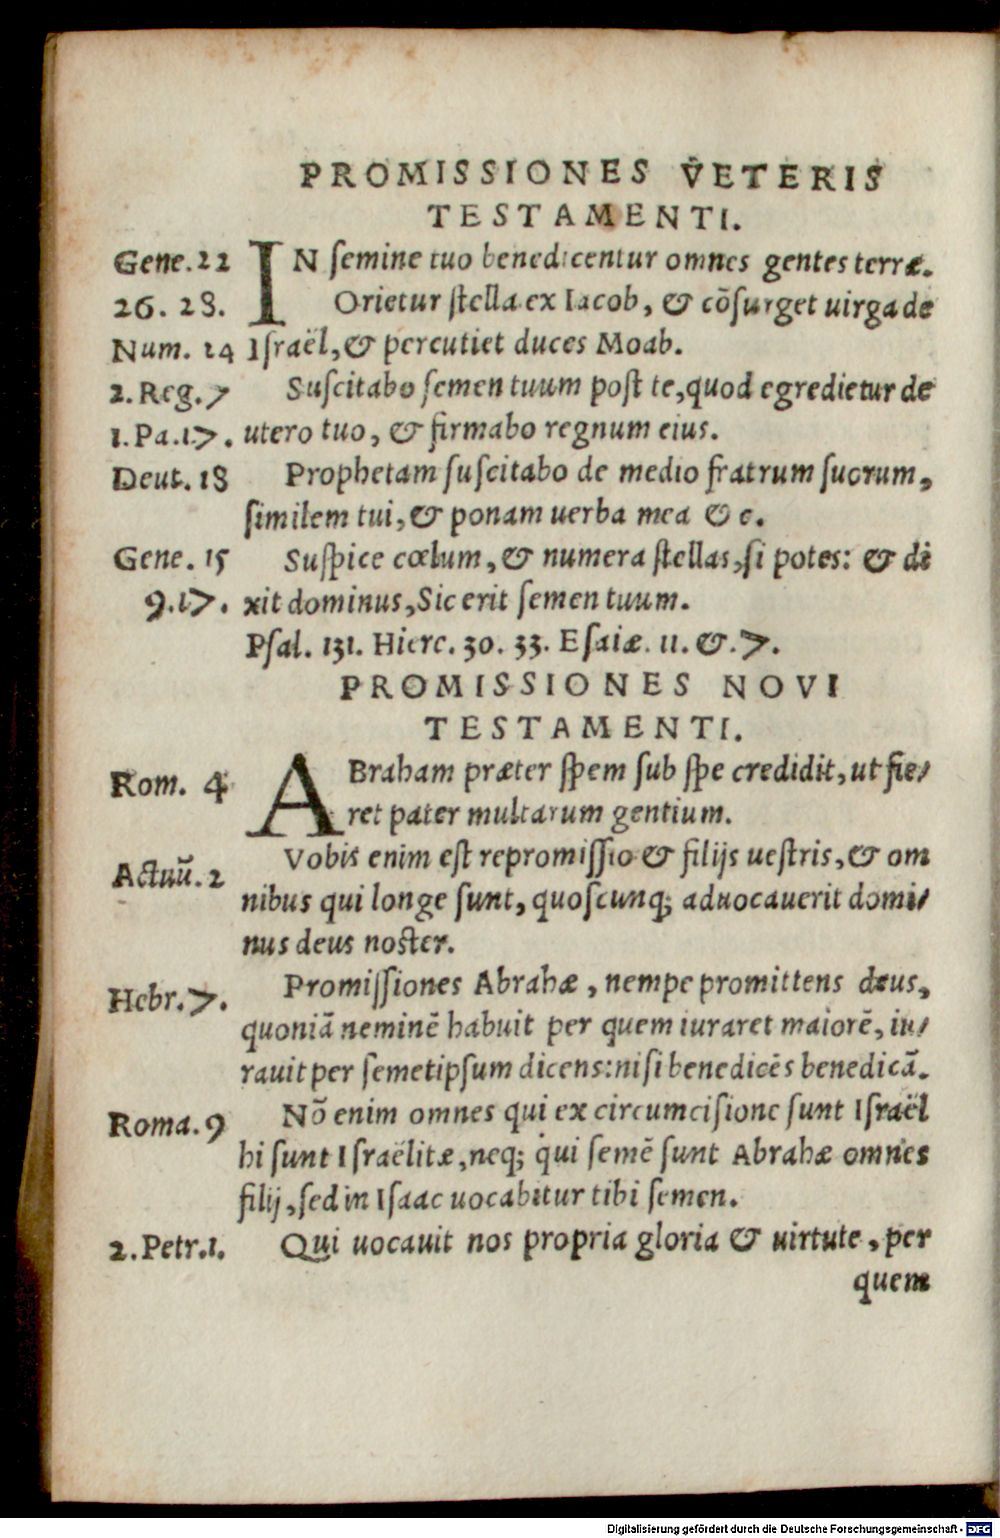 PROMISSIONES VETERIS
TESTAMENTI.
Gene. 22 IN semine tuo benedicentur omnes gentes terræ.
26. 28. Orietur stella ex Iacob, & cōsurget uirga de
Num. 24 Israël, & percutiet duces Moab.
2. Reg. 7 Suscitabo semen tuum post te, quod egredietur de
1. Pa. 17. utero tuo, & firmabo regnum eius.
Deut. 18 Prophetam suscitabo de medio fratrum suorum,
similem tui, & ponam uerba mea &c.
Gene. 15 Suspice cœlum, & numera stellas, si potes: & di
9. 17. xit dominus, Sic erit semen tuum.
Psal. 131. Hiere. 30. 33. Esaiæ. 11. &. 7.
PROMISSIONES NOVI
TESTAMENTI.
Rom. 4 ABraham præter spem sub spe credidit, ut fie/
ret pater multarum gentium.
Vobis enim est repromissio & filijs uestris, & om
Actuū. 2 nibus qui longe sunt, quoscunq; aduocauerit domi/
nus deus noster.
Hebr. 7. Promissiones Abrahæ, nempe promittens deus,
quoniā neminē habuit per quem iuraret maiorē, iu/
rauit per semetipsum dicens: nisi benedicēs benedicā.
Roma. 9 Nō enim omnes qui ex circumcisione sunt Israël
hi sunt Israëlitæ, neq; qui semē sunt Abrahæ omnes
filij, sed in Isaac uocabitur tibi semen.
2. Petr. 1. Qui uocauit nos propria gloria & uirtute, per
quem
Digitalisierung gefördert durch die Deutsche Forschungsgemeinschaft - DFG